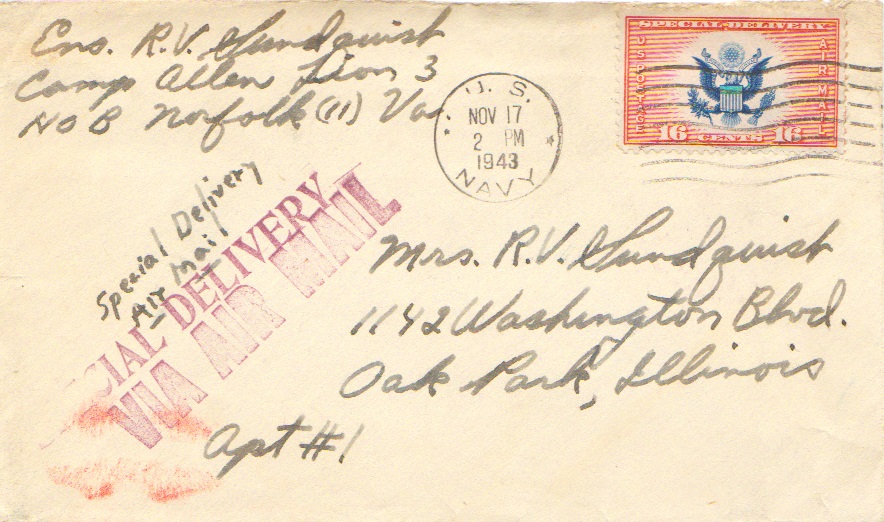 Ens. R.V. Sundquist
Camp Allen Lion 3
NOB Norfolk (11) Va
U. S.
NOV 17
2 PM
1943
NAVY
SPECIAL DELIVERY
U S POSTAGE
AIR MAIL
16 CENTS 16
Special Delivery
Air Mail
SPECIAL DELIVERY
VIA AIR MAIL
Mrs. R.V. Sundquist
1142 Washington Blvd.
Oak Park, Illinois
Apt #1